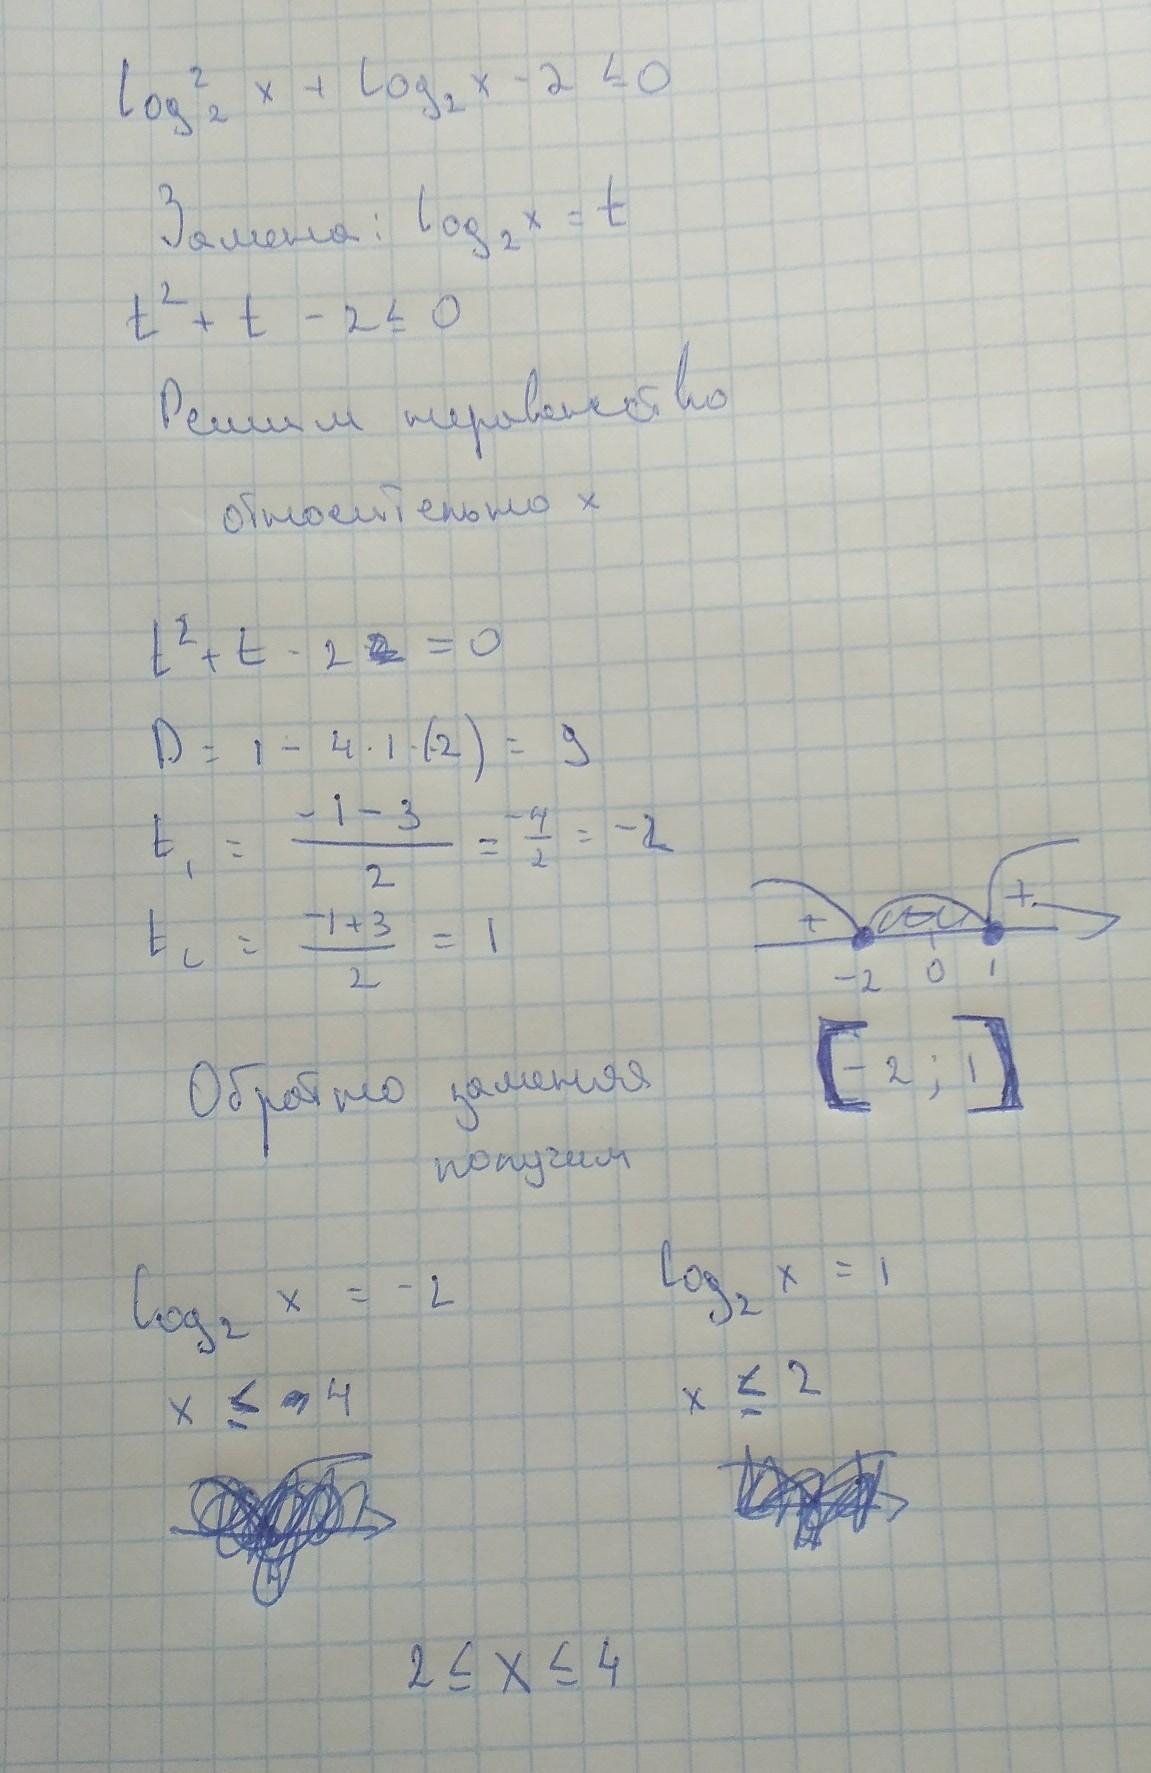 log₂² x + log₂ x - 2 ≤ 0
Замена: log₂ x = t
t² + t - 2 ≤ 0
Решим неравенство
относительно x
t² + t - 2 = 0
D = 1 - 4·1·(-2) = 9
t₁ = (-1-3)/2 = -4/2 = -2
t₂ = (-1+3)/2 = 1
+ +
-2 0 1
[-2; 1]
Обратно заменяя
получим
log₂ x = -2 log₂ x = 1
x ≤ 4 x ≤ 2
2 ≤ x ≤ 4